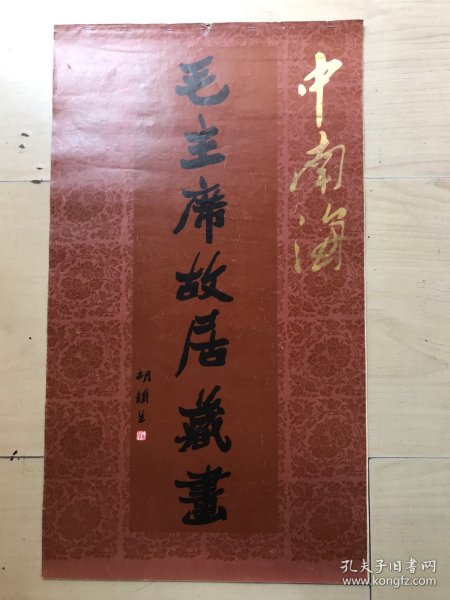 中南海
毛主席故居藏畫
胡鐵生
孔夫子旧书网
www.kongfz.com